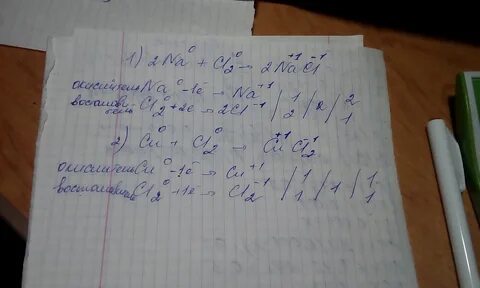 1) 2Na⁰ + Cl₂⁰ → 2Na⁺¹Cl⁻¹
окислитель Na⁰ -1ē → Na⁺¹ / 1 / 2 / 2
восстановитель Cl₂⁰ +2ē → 2Cl⁻¹ / 2 / / 1
2) Cu⁰ + Cl₂⁰ → Cu⁺¹Cl₂⁻¹
окислитель Cu⁰ -1ē → Cu⁺¹ / 1 / 1 / 1
восстановитель Cl₂⁰ +1ē → Cl₂⁻¹ / 1 / / 1